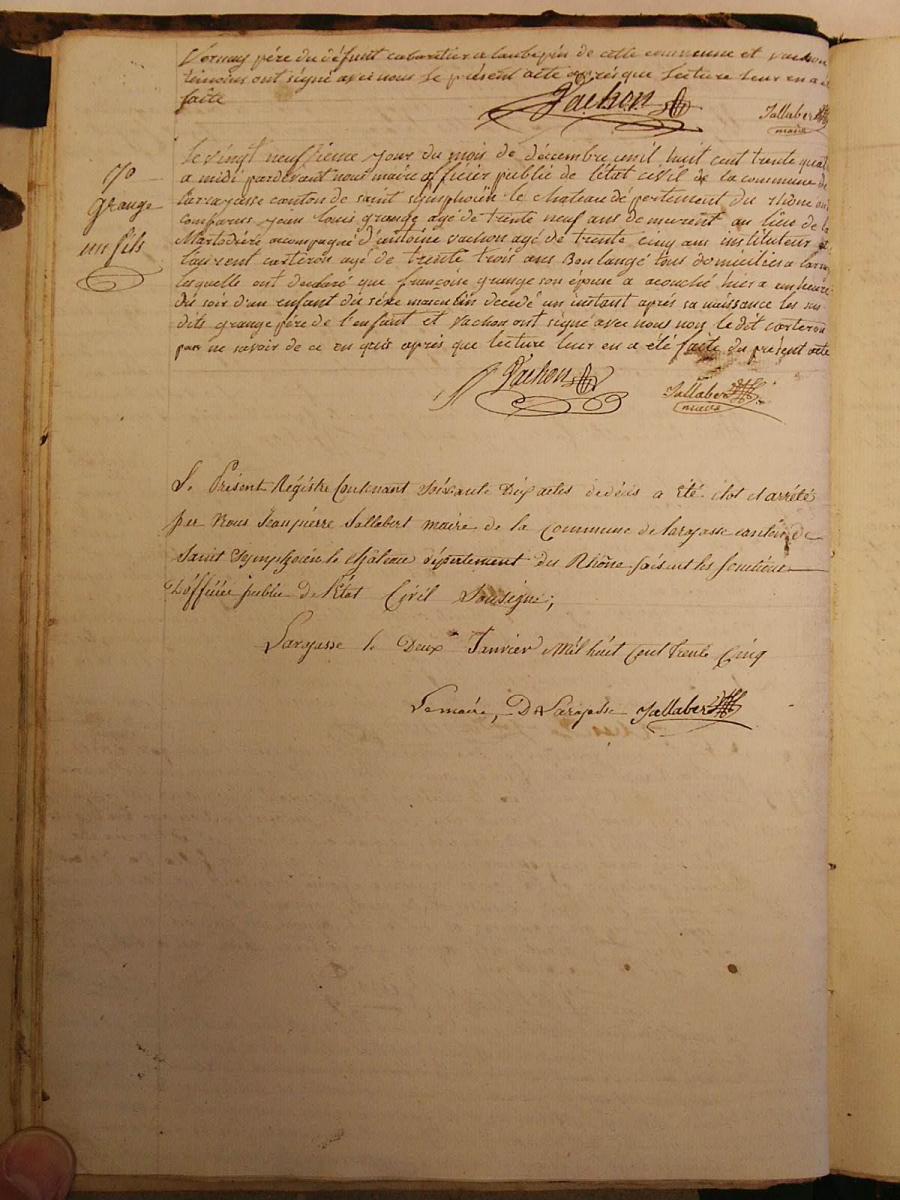 Vernay père du défunt cabaretier a laubepin de cette commune et vachon
témoins ont signé avec nous le présent acte après que lecture leur en a é
faite
Vachon
Jallabert
maire
70
Grange
un fils
Le vingt neuffieme jour du mois de décembre mil huit cent trente quat
a midi pardevant nous maire officier public de l'état civil de la commune de
larrayasse canton de saint simphoïen le chateau département du rhône ont
comparus jean louis grange agé de trente neuf ans demeurent au lieu de la
Martodière acompagné d'antoine vachon agé de trente cinq ans instituteur et
laurent carteron agé de trente trois ans Boulangé tous domiciliés a larra
lesquelle ont déclaré que françoise grange son épouse a acouché hier a un heure
du soir d'un enfant du séxe masculin decédé un instant après sa naissance les sus
dits grange père de l'enfant et vachon ont signé avec nous non le dit carteron
par ne savoir de ce en quis après que lecture leur en a été faite du présent acte
Vachon
Jallabert
maire
Le Présent Régistre Contenant Soixante Dix actes de décès a été clot et arrêté
par Nous Jean pierre Jallabert maire de la Commune de larajasse canton de
Saint Symphorien le château département du Rhône faisant les fonctions
D'officier public de l'état Civil Soussigné;
Larajasse le Deux Janvier Mil huit Cent trente Cinq
Le maire, De Larajasse Jallabert